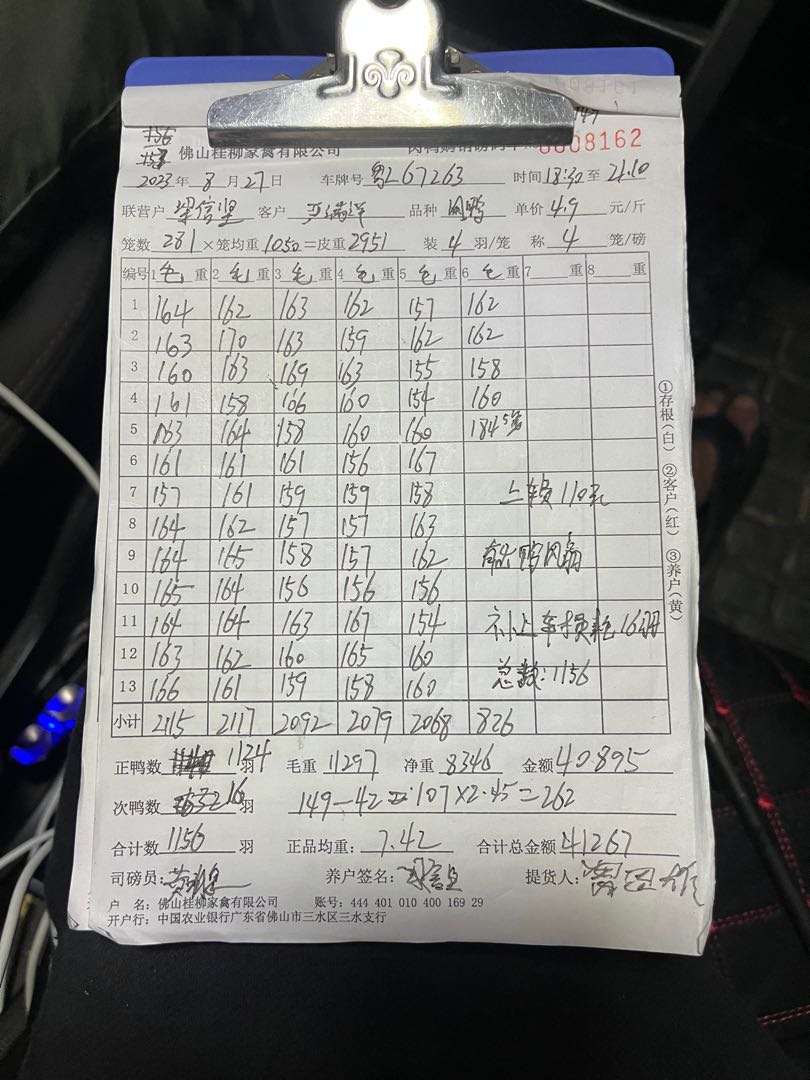 156
佛山桂柳家禽有限公司 0008162
2023年8月27日 车牌号 粤L67263 时间18:30至21:10
联营户 梁信坚 客户 品种 肉鸭 单价4.9元/斤
笼数281×笼均重1050=皮重2951 装4羽/笼 称4笼/磅
编号 1毛重 2毛重 3毛重 4毛重 5毛重 6毛重 7重 8重
1 164 162 163 162 157 162
2 163 170 163 159 162 162
3 160 163 169 163 155 158
4 161 158 166 160 154 160
5 163 164 158 160 160 184 5笼
6 161 161 161 156 167
7 157 161 159 159 158 上车员110元
8 164 162 157 157 163
9 164 165 158 157 162 鸭风扇
10 165 164 156 156 156
11 164 164 163 167 154 补上车损耗16羽
12 163 162 160 165 160
13 166 161 159 158 160 总数:1156
小计 2115 2117 2092 2079 2068 826
正鸭数 1124羽 毛重11297 净重8346 金额40895
次鸭数 羽 149-42=107×2.45=262
合计数1156羽 正品均重:7.42 合计总金额41267
司磅员: 养户签名: 提货人:
户 名:佛山桂柳家禽有限公司 账号:444 401 010 400 169 29
开户行:中国农业银行广东省佛山市三水区三水支行
①存根(白) ②客户(红) ③养户(黄)